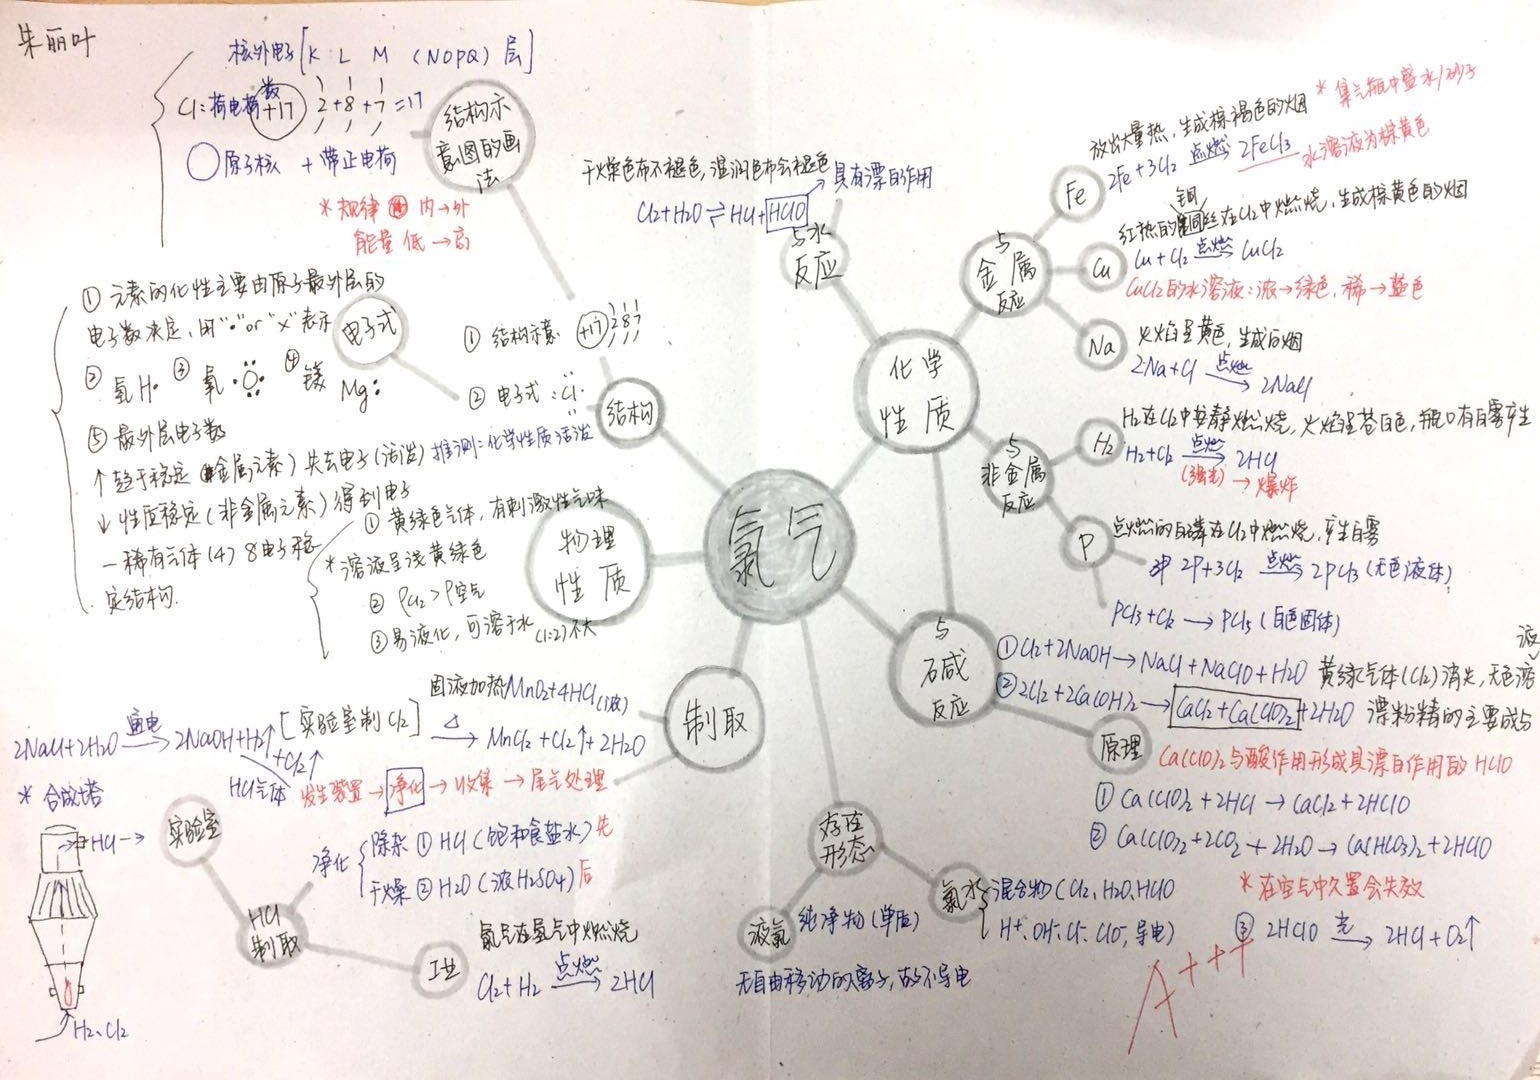 朱丽叶
核外电子[K L M (NOPQ) 层]
Cl:荷电荷数 +17 2+8+7=17
○原子核 + 带正电荷
*规律 内→外
能量 低→高
结构示
意图的画
法
① 元素的化性主要由原子最外层的
电子数决定，用"·"or"×"表示
② 氢 H· ③ 氧 ·O: ④ 镁 Mg:
⑤ 最外层电子数
↑趋于稳定(金属元素)失去电子(活泼)
↓性质稳定(非金属元素)得到电子
一稀有气体(4)8电子稳
定结构.
电子式
① 结构示意 +17 2 8 7
② 电子式 :Cl·
推测:化学性质活泼
结构
① 黄绿色气体，有刺激性气味
*溶液呈浅黄绿色
② ρCl2>ρ空气
③易液化，可溶于水(1:2)不大
物理
性质
氯气
化学
性质
与水
反应
干燥色布不褪色，湿润色布会褪色
Cl2+H2O⇌HCl+HClO
具有漂白作用
与
金属
反应
Fe
放出大量热，生成棕褐色的烟
*集气瓶中盛水/砂子
2Fe+3Cl2 点燃→ 2FeCl3
水溶液为棕黄色
Cu
铜
红热的丝在Cl2中燃烧，生成棕黄色的烟
Cu+Cl2 点燃→ CuCl2
CuCl2的水溶液:浓→绿色，稀→蓝色
Na
火焰呈黄色，生成白烟
2Na+Cl 点燃→ 2NaCl
与
非金属
反应
H2
H2在Cl2中安静燃烧，火焰呈苍白色，瓶口有白雾产生
H2+Cl2 点燃→ 2HCl
(强光)→爆炸
P
点燃的白磷在Cl2中燃烧，产生白雾
2P+3Cl2 点燃→ 2PCl3(无色液体)
PCl3+Cl2→PCl5(白色固体)
与
碱
反应
①Cl2+2NaOH→NaCl+NaClO+H2O 黄绿气体(Cl2)消失，无色溶
液
②2Cl2+2Ca(OH)2→CaCl2+Ca(ClO)2+2H2O 漂粉精的主要成分
原理
Ca(ClO)2与酸作用形成具漂白作用的HClO
① Ca(ClO)2+2HCl→CaCl2+2HClO
② Ca(ClO)2+2CO2+2H2O→Ca(HCO3)2+2HClO
*在空气中久置会失效
③ 2HClO 光→ 2HCl+O2↑
A+++
制取
固液加热MnO2+4HCl(浓)
[实验室制Cl2] △→ MnCl2+Cl2↑+2H2O
2NaCl+2H2O 通电→ 2NaOH+H2↑
+Cl2↑
HCl气体
发生装置→净化→收集→尾气处理
*合成塔
HCl→
H2、Cl2
实验室
HCl
制取
工业
净化
除杂①HCl(饱和食盐水)先
干燥②H2O(浓H2SO4)后
氯气在氢气中燃烧
Cl2+H2 点燃→ 2HCl
存在
形态
液氯
纯净物(单质)
无自由移动的离子，故不导电
氯水
混合物(Cl2、H2O、HClO
H+、OH-、Cl-、ClO-，导电)